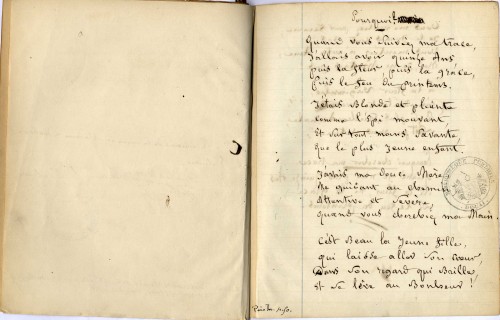 Pourquoi?
Quand vous suiviez ma trace,
J'allais avoir quinze Ans,
puis la fleur, puis la grâce,
Puis le feu du printems.
J'étais Blonde et pliante
comme l'épi mouvant
Et surtout moins savante
que le plus jeune enfant.
J'avais ma douce Mère
Me guidant au chemin
Attentive et sévère,
quand vous cherchiez ma Main.
C'est Beau la jeune fille,
qui laisse aller son cœur,
Dans son regard qui Brille,
et se lève au Bonheur!